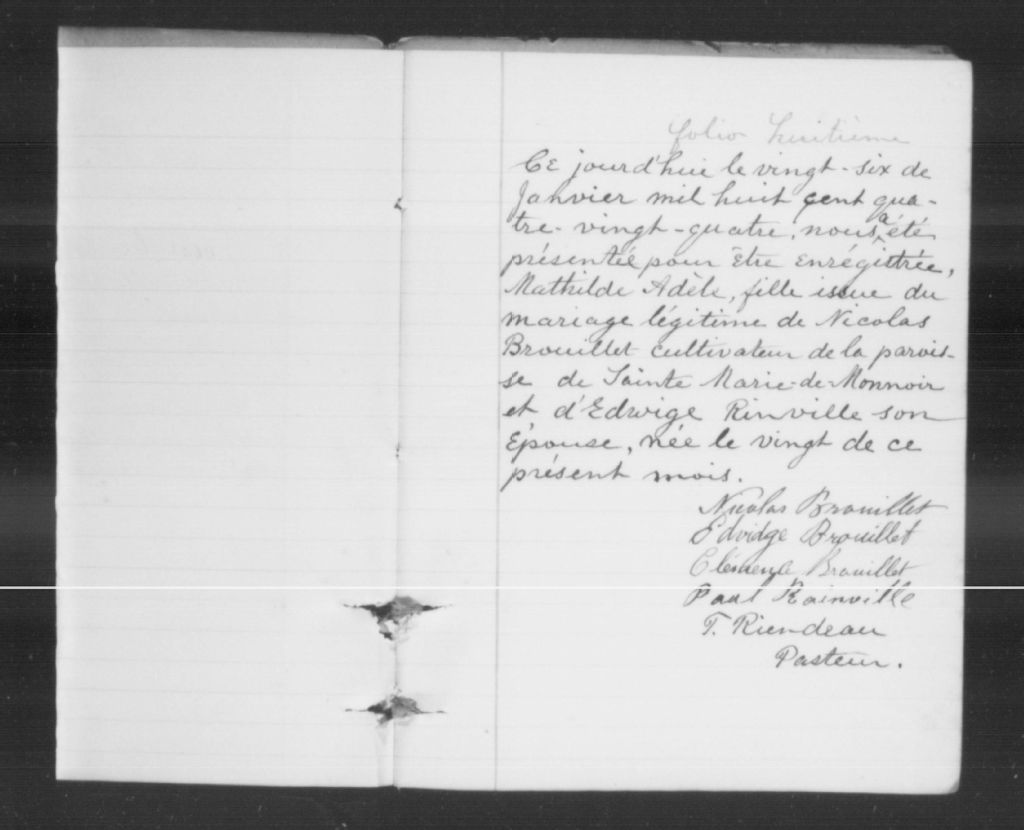 folio huitième
Ce jourd'hui le vingt-six de
Janvier mil huit cent qua-
tre-vingt-quatre, nous a été
présentée pour être enrégistrée,
Mathilde Adèle, fille issue du
mariage légitime de Nicolas
Brouillet cultivateur de la parois-
se de Sainte Marie-de-Monnoir
et d'Edwige Rinville son
Épouse, née le vingt de ce
présent mois.
Nicolas Brouillet
Edvidge Brouillet
Brouillet
Paul Rainville
T. Riendeau
Pasteur.